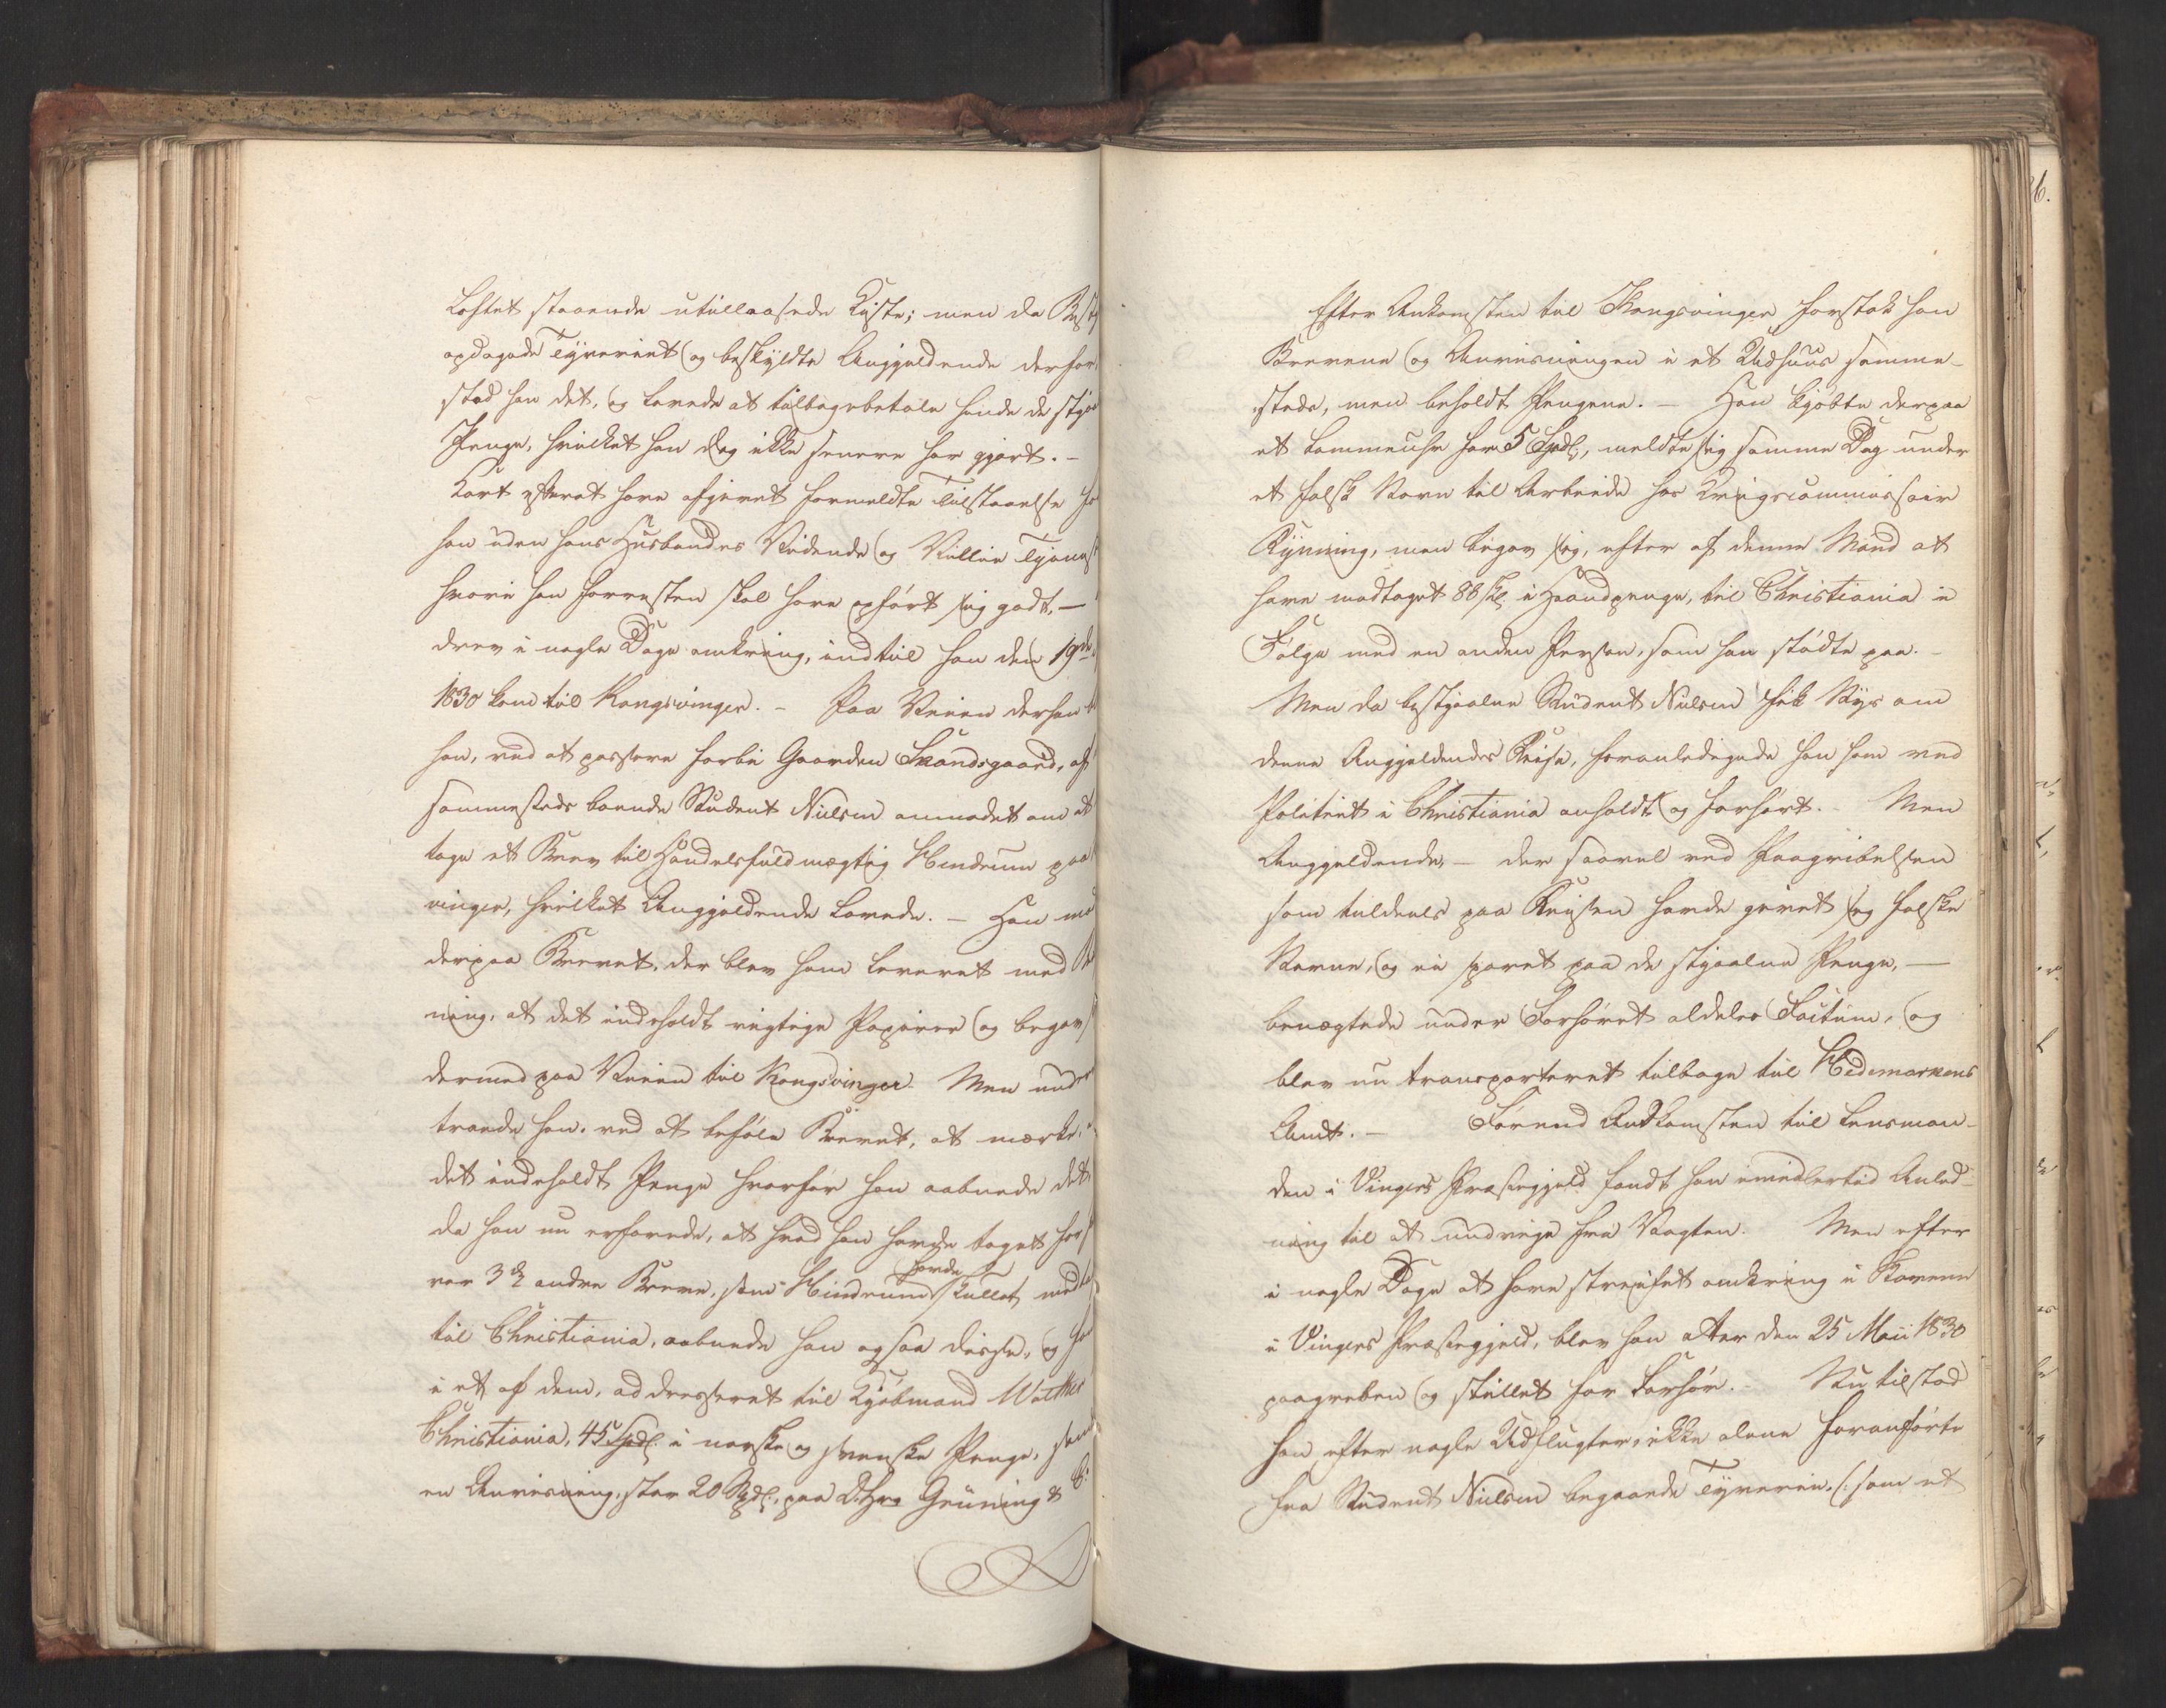 Loftet staaende utillaasede Kiste; men da
opdagede Tyveriet og beskyldte Angjældende derfor,
stod han det, og lovede at tilbagebetale hende de
Penge, hvilket han dog ikke senere har gjort. –
Kort efterat have afgivet formeldte Tilstaaelse
han uden hans Husbondes Vidende og Villie
hvori han forresten skal have opført sig godt, –
drev i nogle Dage omkring, indtil han den 19de
1830 kom til Kongsvinger. – Paa Veien derhen
han, ved at passere forbi Gaarden Skandsgaard, af
sammesteds boende Student Nielsen anmodet om at
tage et Brev til Handelsfuldmægtig Hindrum paa
vinger, hvilket Angjældende lovede. – Han
derpaa Brevet, der blev ham leveret med
ning, at det indeholdt vigtige Papirer og begav
dermed paa Veien til Kongsvinger. Men
troede han, ved at beføle Brevet, at mærke,
det indeholdt Penge hvorfor han aabnede det,
da han nu erfarede, at hvad han havde taget for
var 3de andre Breve, som Hindrum havde skullet
til Christiania, aabnede han ogsaa disse, og
i et af dem, addresseret til Kjøbmand
Christiania, 45 Spdl. i norske og svenske Penge,
en Anviisning, stor 20 Spdl. paa DHrr Grüning & C:
6.
Efter Ankomsten til Kongsvinger forstak han
Brevene og Anviisningen i et Udhuus samme-
steds, men beholdt Pengene. – Han kjøbte derpaa
et Lommeuhr for 5 Spdl., meldte sig samme Dag under
et falsk Navn til Arbeide hos Krigscommissair
Rynning, men begav sig, efter af denne Mand at
have modtaget 86 sk i Haandpenge, til Christiania i
Følge med en anden Person, som han stødte paa. –
Men da bestjaalne Student Nielsen fik Nys om
denne Angjældendes Reise, foranledigede han ham ved
Politiet i Christiania anholdt og forhørt. – Men
Angjældende, – der saavel ved Paagribelsen
som tildeels paa Reisen havde givet sig falske
Navne, og ei sparet paa de stjaalne Penge, –
benægtede under Forhøret aldeles Factum, og
blev nu transporteret tilbage til Hedemarkens
Amt. – Førend Ankomsten til Lensman-
den i Vingers Præstegjeld fandt han imidlertid Anled-
ning til at undvige fra Vagten. Men efter
i nogle Dage at have streifet omkring i Skovene
i Vingers Præstegjeld, blev han atter den 25 Maii 1830
paagreben og stillet for Forhør. – Nu tilstod
han efter nogle Udflugter, ikke alene foranførte
fra Student Nielsen begaaede Tyverie, (: som et